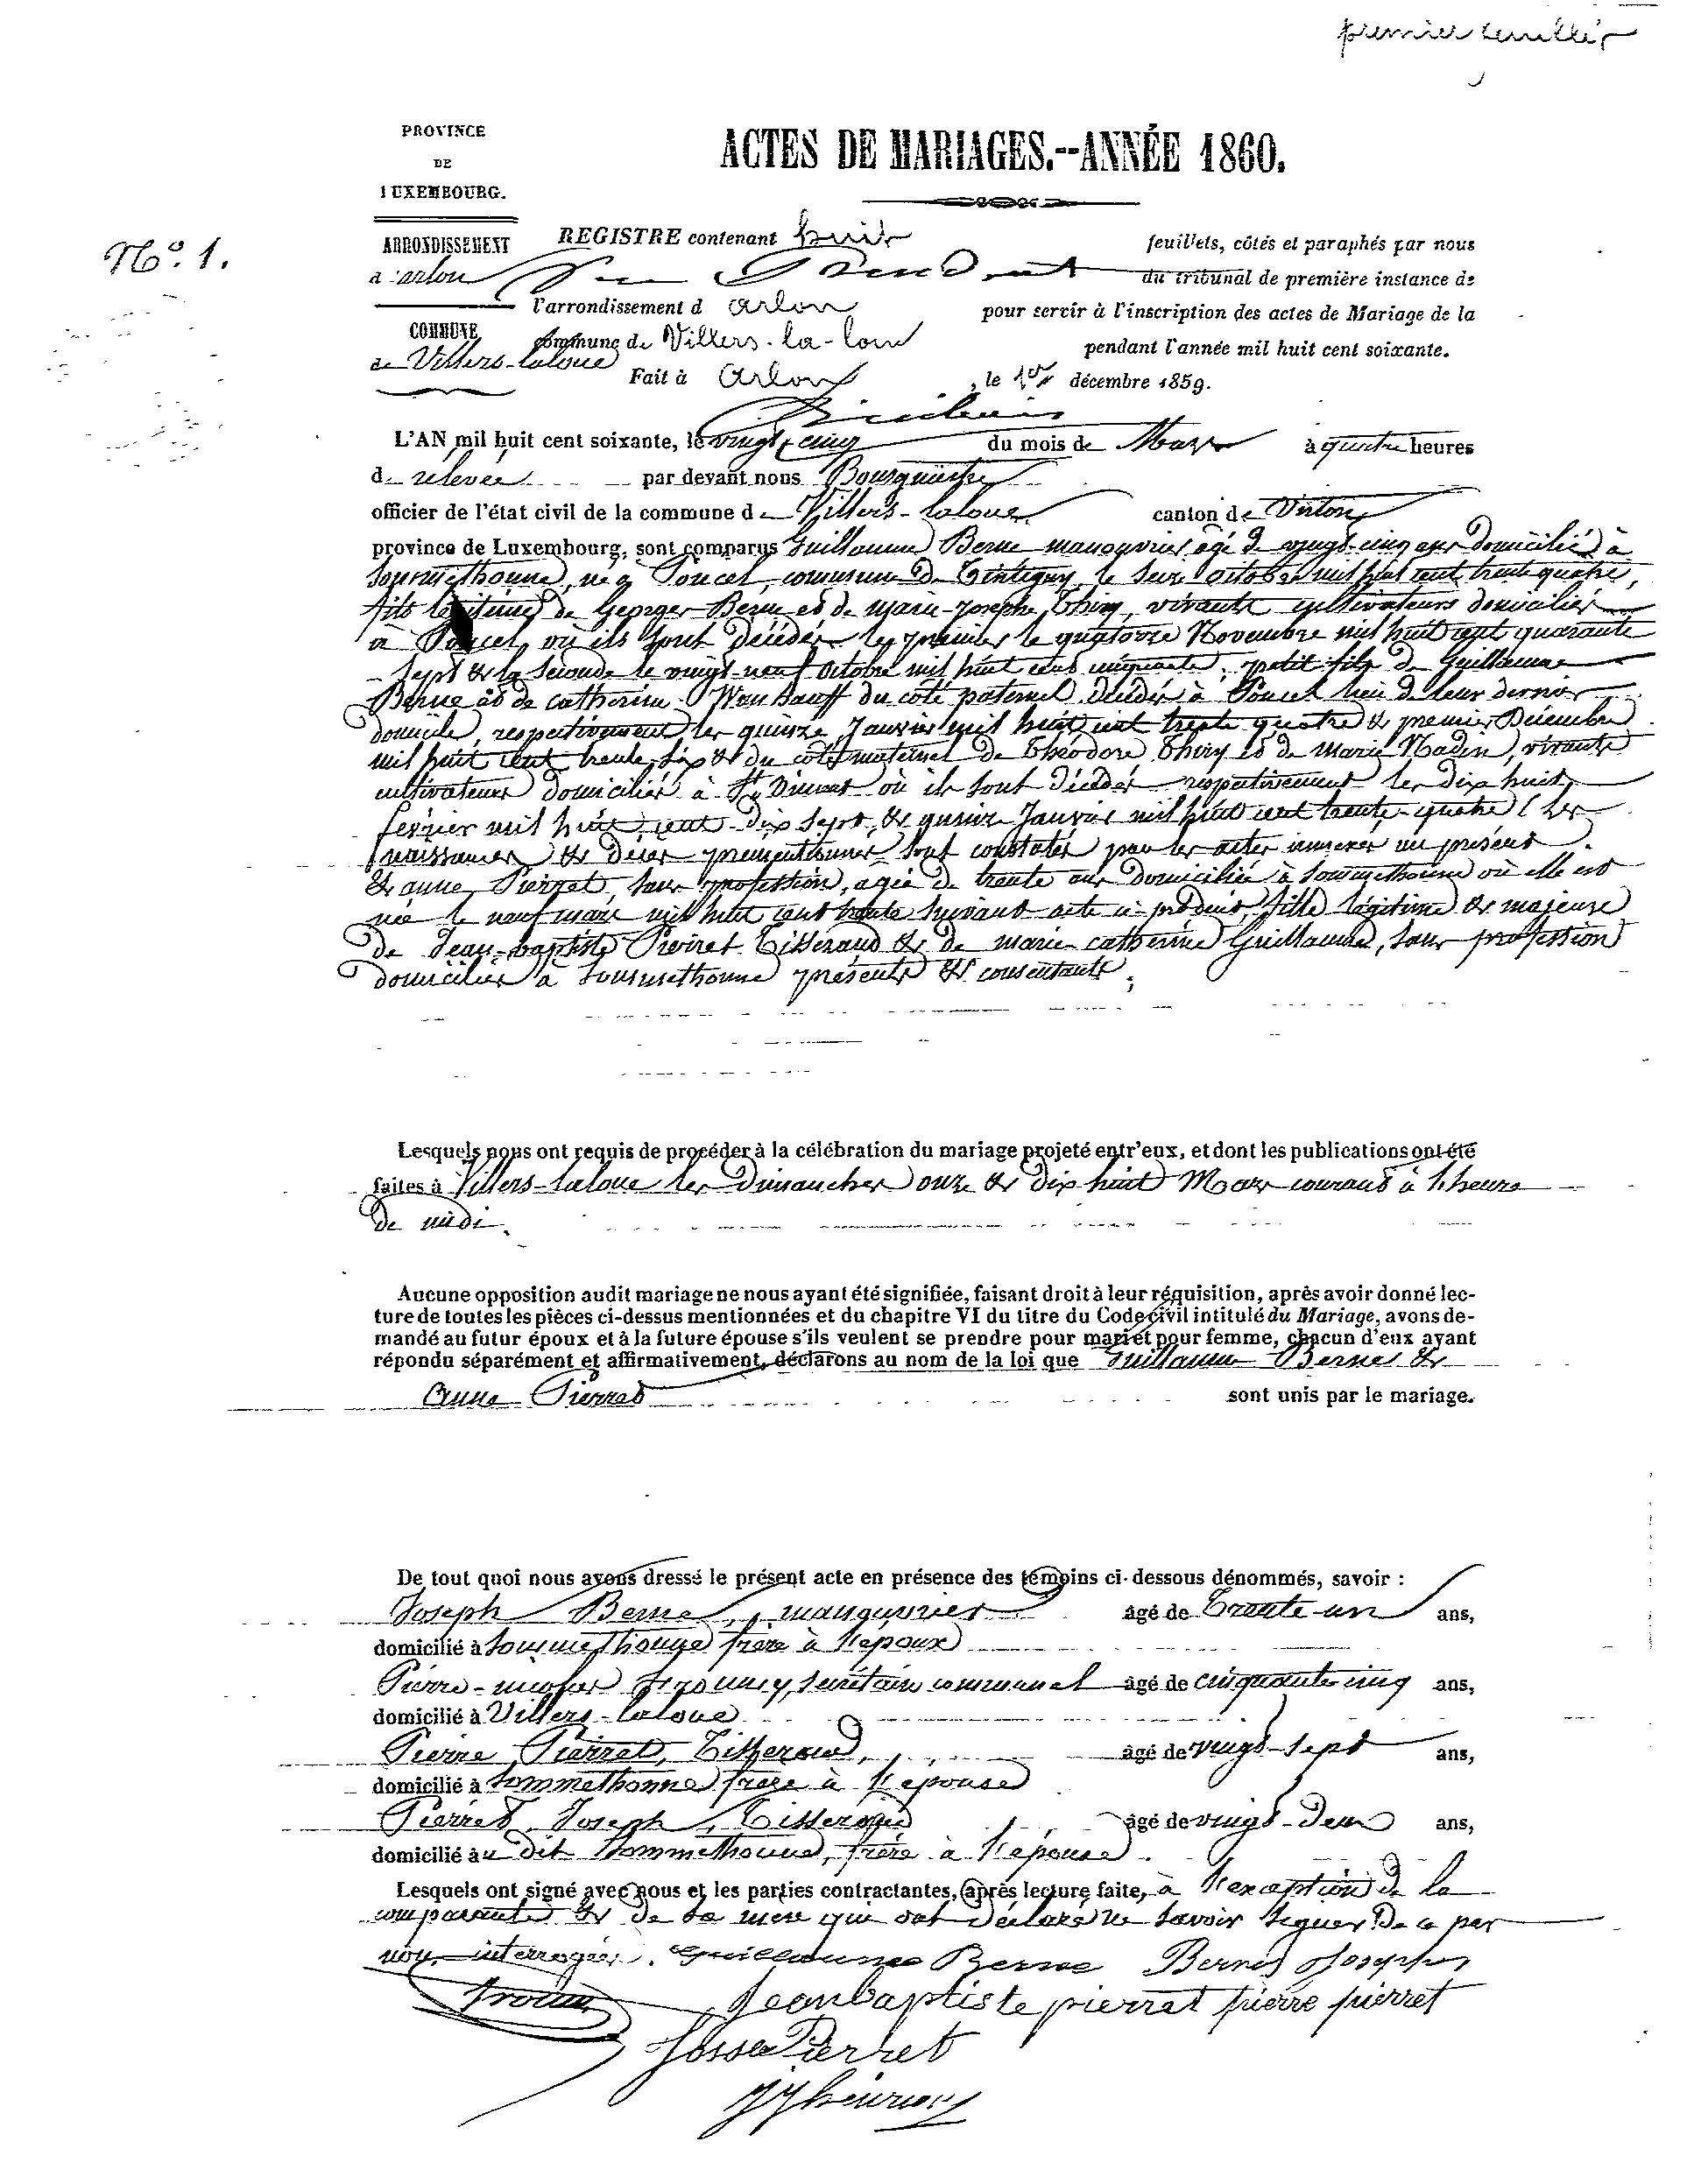 premier feuillet
PROVINCE
DE
LUXEMBOURG.
ACTES DE MARIAGES.--ANNÉE 1860.
N.o 1.
ARRONDISSEMENT
d'arlon
COMMUNE
de Villers-laloue
REGISTRE contenant huit feuillets, côtés et paraphés par nous
Président du tribunal de première instance de
l'arrondissement d arlon pour servir à l'inscription des actes de Mariage de la
commune de Villers-la-loue pendant l'année mil huit cent soixante.
Fait à arlon, le 1er décembre 1859.
L'AN mil huit cent soixante, le vingt cinq du mois de Mars à quatre heures
de relevée par devant nous Bourgmestre
officier de l'état civil de la commune de Villers-laloue canton de Virton
province de Luxembourg, sont comparus Guillaume Berne manouvrier âgé de vingt-cinq ans domicilié à
Sommethonne, né à Poncel, commune de Tintigny, le seize octobre mil huit cent trente quatre,
fils légitime de Georges Berne et de marie-Josephe Thiry, vivants cultivateurs domiciliés
à Poncel où ils sont décédés le premier le quatorze Novembre mil huit cent quarante
sept & la seconde le vingt-neuf octobre mil huit cent cinquante, petit fils de Guillaume
Berne et de catherine du côté paternel décédés à Poncel lieu de leur dernier
domicile, respectivement les quinze Janvier mil huit cent trente quatre & premier Décembre
mil huit cent trente six & du côté maternel de Théodore Thiry et de marie Nadin, vivants
cultivateurs domiciliés à St Vincent où ils sont décédés respectivement les dix huit
février mil huit cent dix sept & quinze Janvier mil huit cent trente-quatre (les
naissances & décès prémentionnés sont constatés par les actes annexés au présent.
& anne Pierret, sans profession, agée de trente ans domiciliée à Sommethonne où elle est
née le neuf mars mil huit cent trente suivant acte ci-produit, fille légitime & majeure
de Jean-baptiste Pierret Tisserand & de marie catherine Guillaume, sans profession
domiciliés à Sommethonne présents & consentants.
Lesquels nous ont requis de procéder à la célébration du mariage projeté entr'eux, et dont les publications ont été
faites à Villers-laloue les Dimanches onze & dix huit Mars courant à l'heure
de midi.
Aucune opposition audit mariage ne nous ayant été signifiée, faisant droit à leur réquisition, après avoir donné lec-
ture de toutes les pièces ci-dessus mentionnées et du chapitre VI du titre du Code civil intitulé du Mariage, avons de-
mandé au futur époux et à la future épouse s'ils veulent se prendre pour mari et pour femme, chacun d'eux ayant
répondu séparément et affirmativement, déclarons au nom de la loi que Guillaume Berne &
Anne Pierret sont unis par le mariage.
De tout quoi nous avons dressé le présent acte en présence des témoins ci-dessous dénommés, savoir :
Joseph Berne, manouvrier âgé de Trente-un ans,
domicilié à Sommethonne frère à l'époux
Pierre-nicolas secrétaire communal âgé de cinquante cinq ans,
domicilié à Villers-laloue
Pierre Pierret, Tisserand, âgé de vingt-sept ans,
domicilié à Sommethonne frère à l'épouse
Pierret Joseph, Tisserand âgé de vingt-deux ans,
domicilié au dit Sommethonne, frère à l'épouse.
Lesquels ont signé avec nous et les parties contractantes, après lecture faite, à l'exception de la
comparante & de sa mère qui ont déclaré ne savoir signer de ce par
nous interrogées. Guillaume Berne Berne Joseph
Jeanbaptiste pierret pierre pierret
Pierret